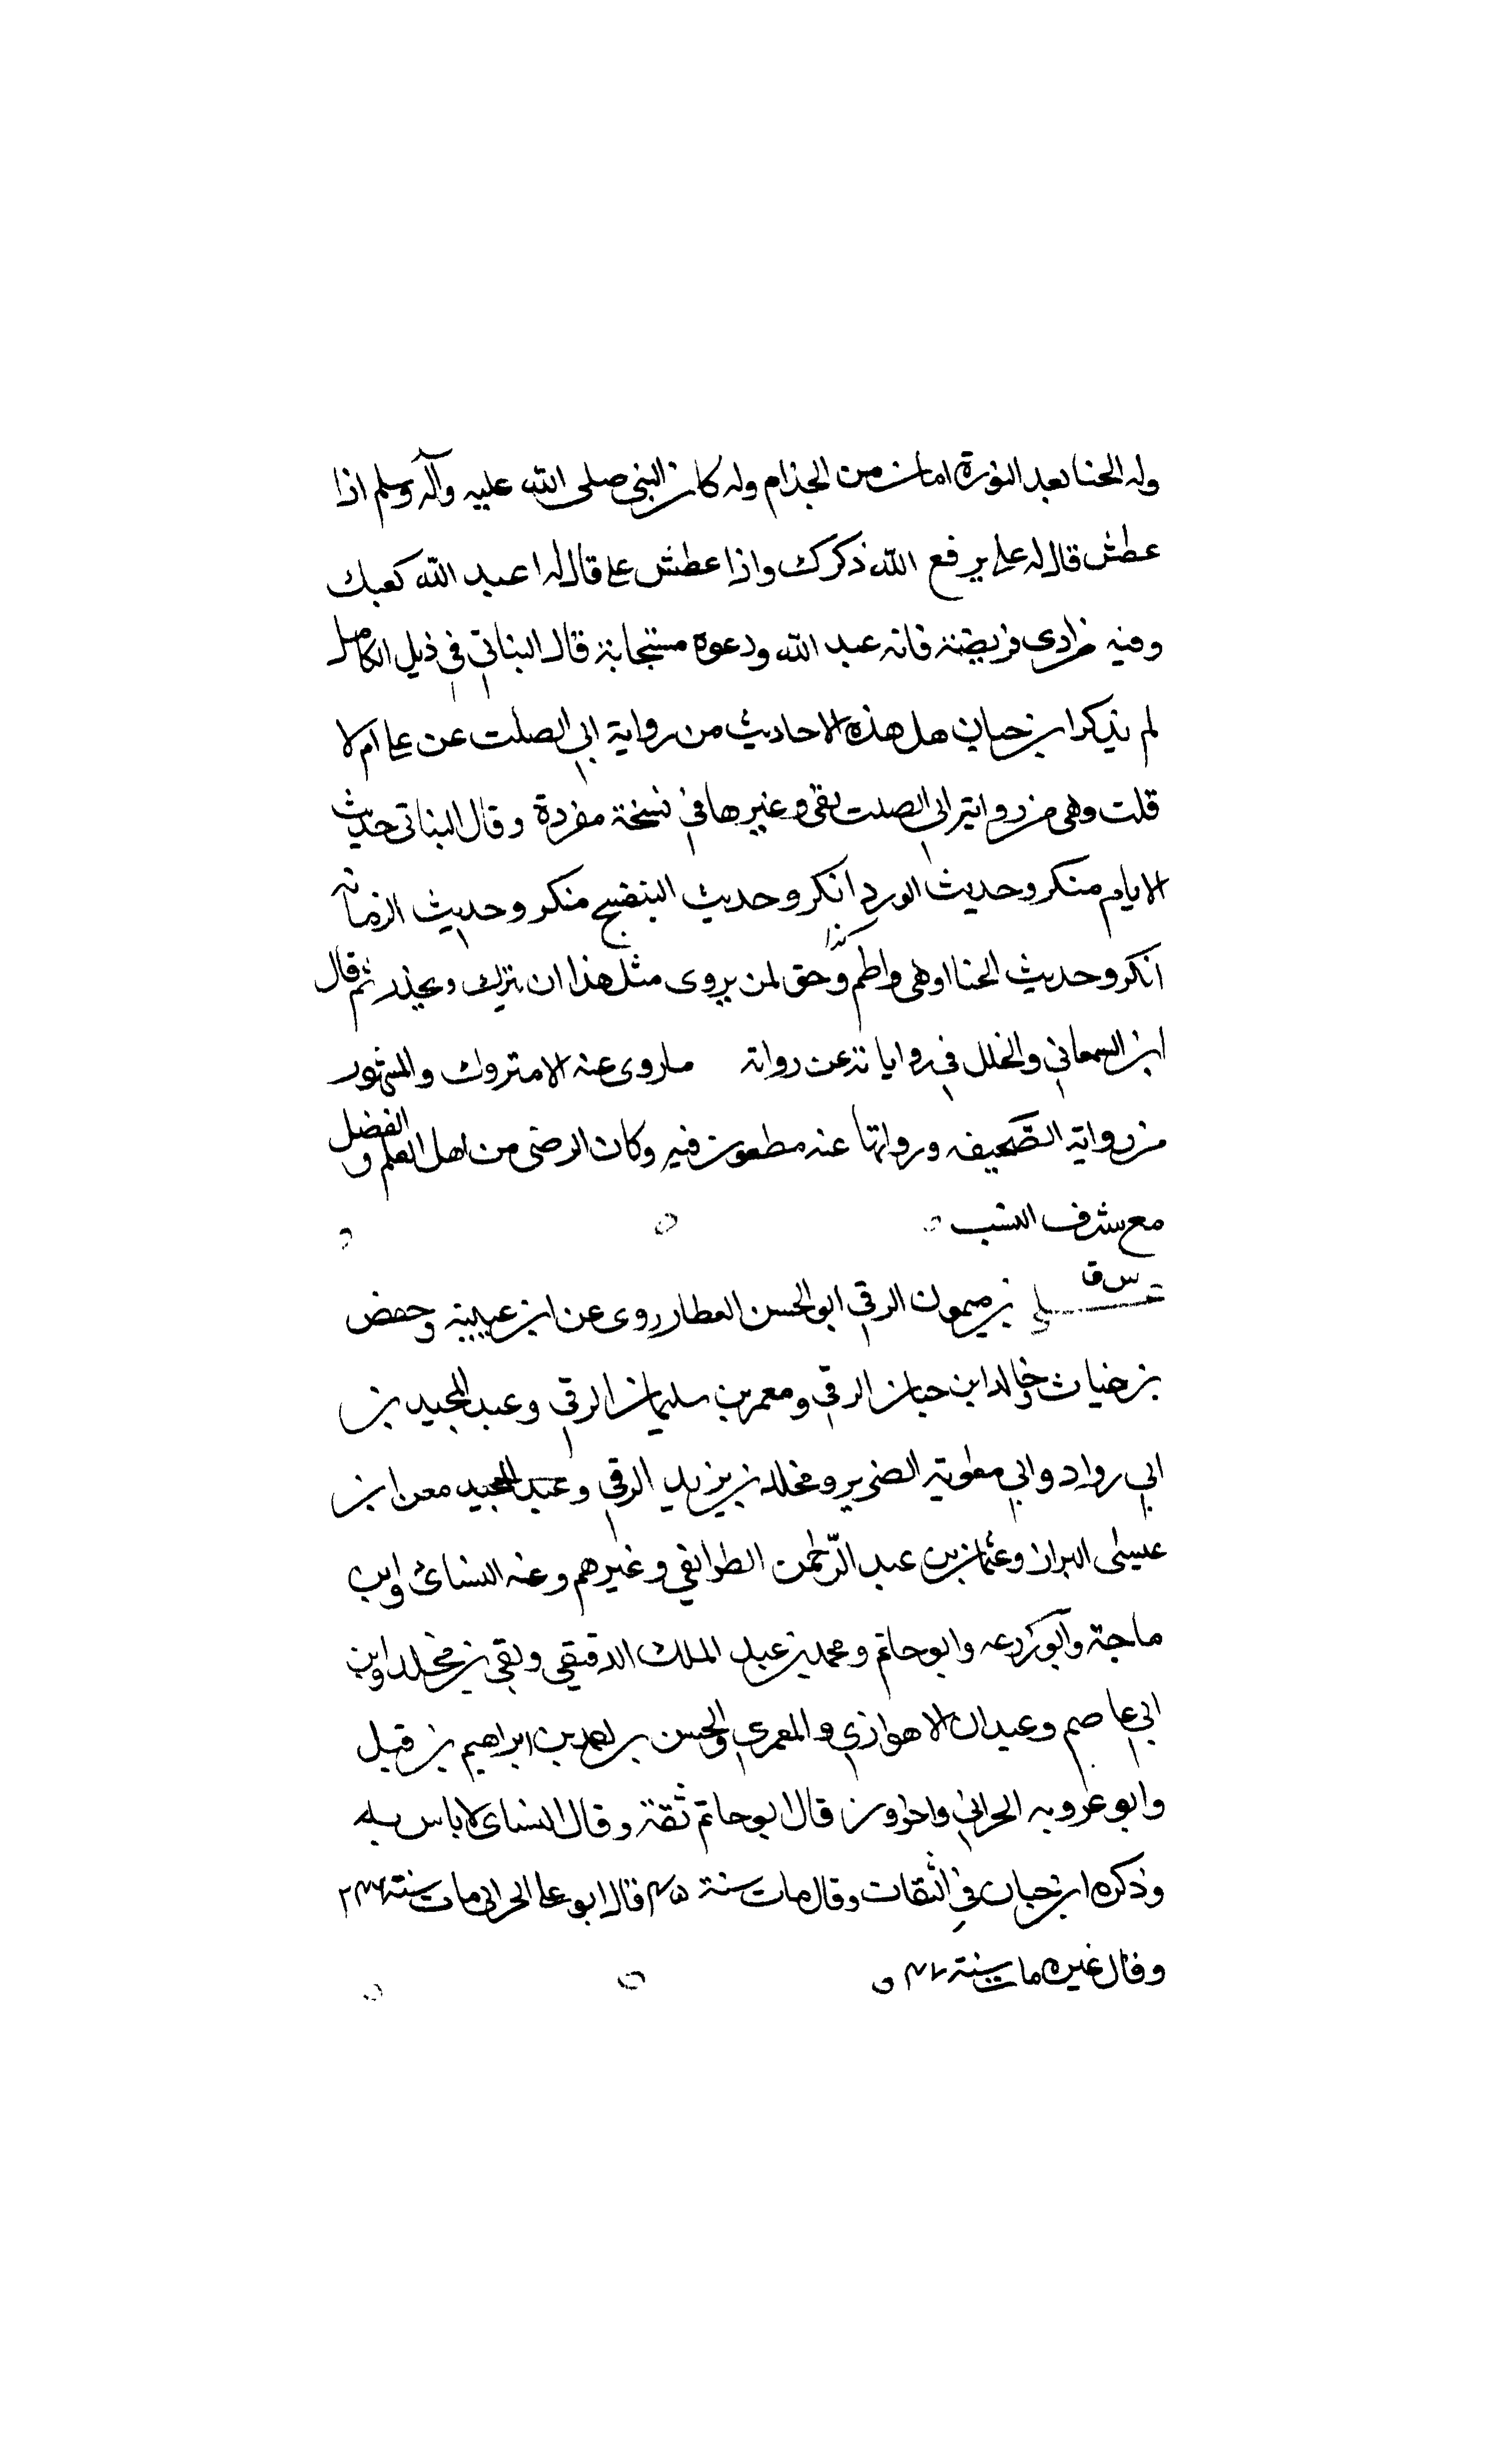 وله الحنا بعد النورة امان من الجذام وله كان النبى صلى الله عليه وآله وسلم اذا
عطش قال له على يرفع الله ذكرك واذا عطش على قال له ا عبد الله كعبك
وفيه من ادى فريضة فاته عبد الله ودعوه مستجابة قال البناتي في ذيل الكامل
لم يذكر ابن حبان هل هذه الاحاديث من رواية ابي الصلت عن على ام لا
قلت وهى من روايته ابى الصلت بقى وغيرها في نسخة مفردة وقال البناتى حديث
الايام منكر وحديث الورد انكر وحديث البنفسج منكر وحديث الرمانه
انكر وحديث الحنا اوهى واطم وحق لمن يروى مثل هذا ان يترك ويحذر ثم قال
ابن السمعاني والخلل في رواياته عن رواته ما روى عنه الا متروك والمشهور
من روايته الصحيفه ورواتها عنه مطعون فيه وكان الرضى من اهل العلم والفضل
مع شرف النسب
س ق
على بن ميمون الرقي ابو الحسن العطار روى عن ابن عيينة وحفص
بن غياث وخالد ابن حبان الرقي ومعمر بن سليمان الرقي وعبد المجيد بن
ابي رواد وابي معاوية الضرير ومخلد بن يزيد الرقي وعبد المجيد معن ابن
عيسى البزاز وعثمان بن عبد الرحمن الطرايفي وغيرهم وعنه النسائ وابن
ماجة وابو زرعه وابو حاتم ومحمد بن عبد الملك الدقيقي وبقي بن مخلد وابن
ابي عاصم وعبدان الاهوازي والمعمري والحسن بن احمد بن ابراهيم بن فيل
وابو عروبه الحراني واخرون قال ابو حاتم ثقة وقال النساى لا باس به
وذكره ابن حبان في الثقات وقال مات سنة ٢٤٥ قال ابو على الحرانى مات سنة ٢٤٦
وقال غيره مات سنة ٢٤٧